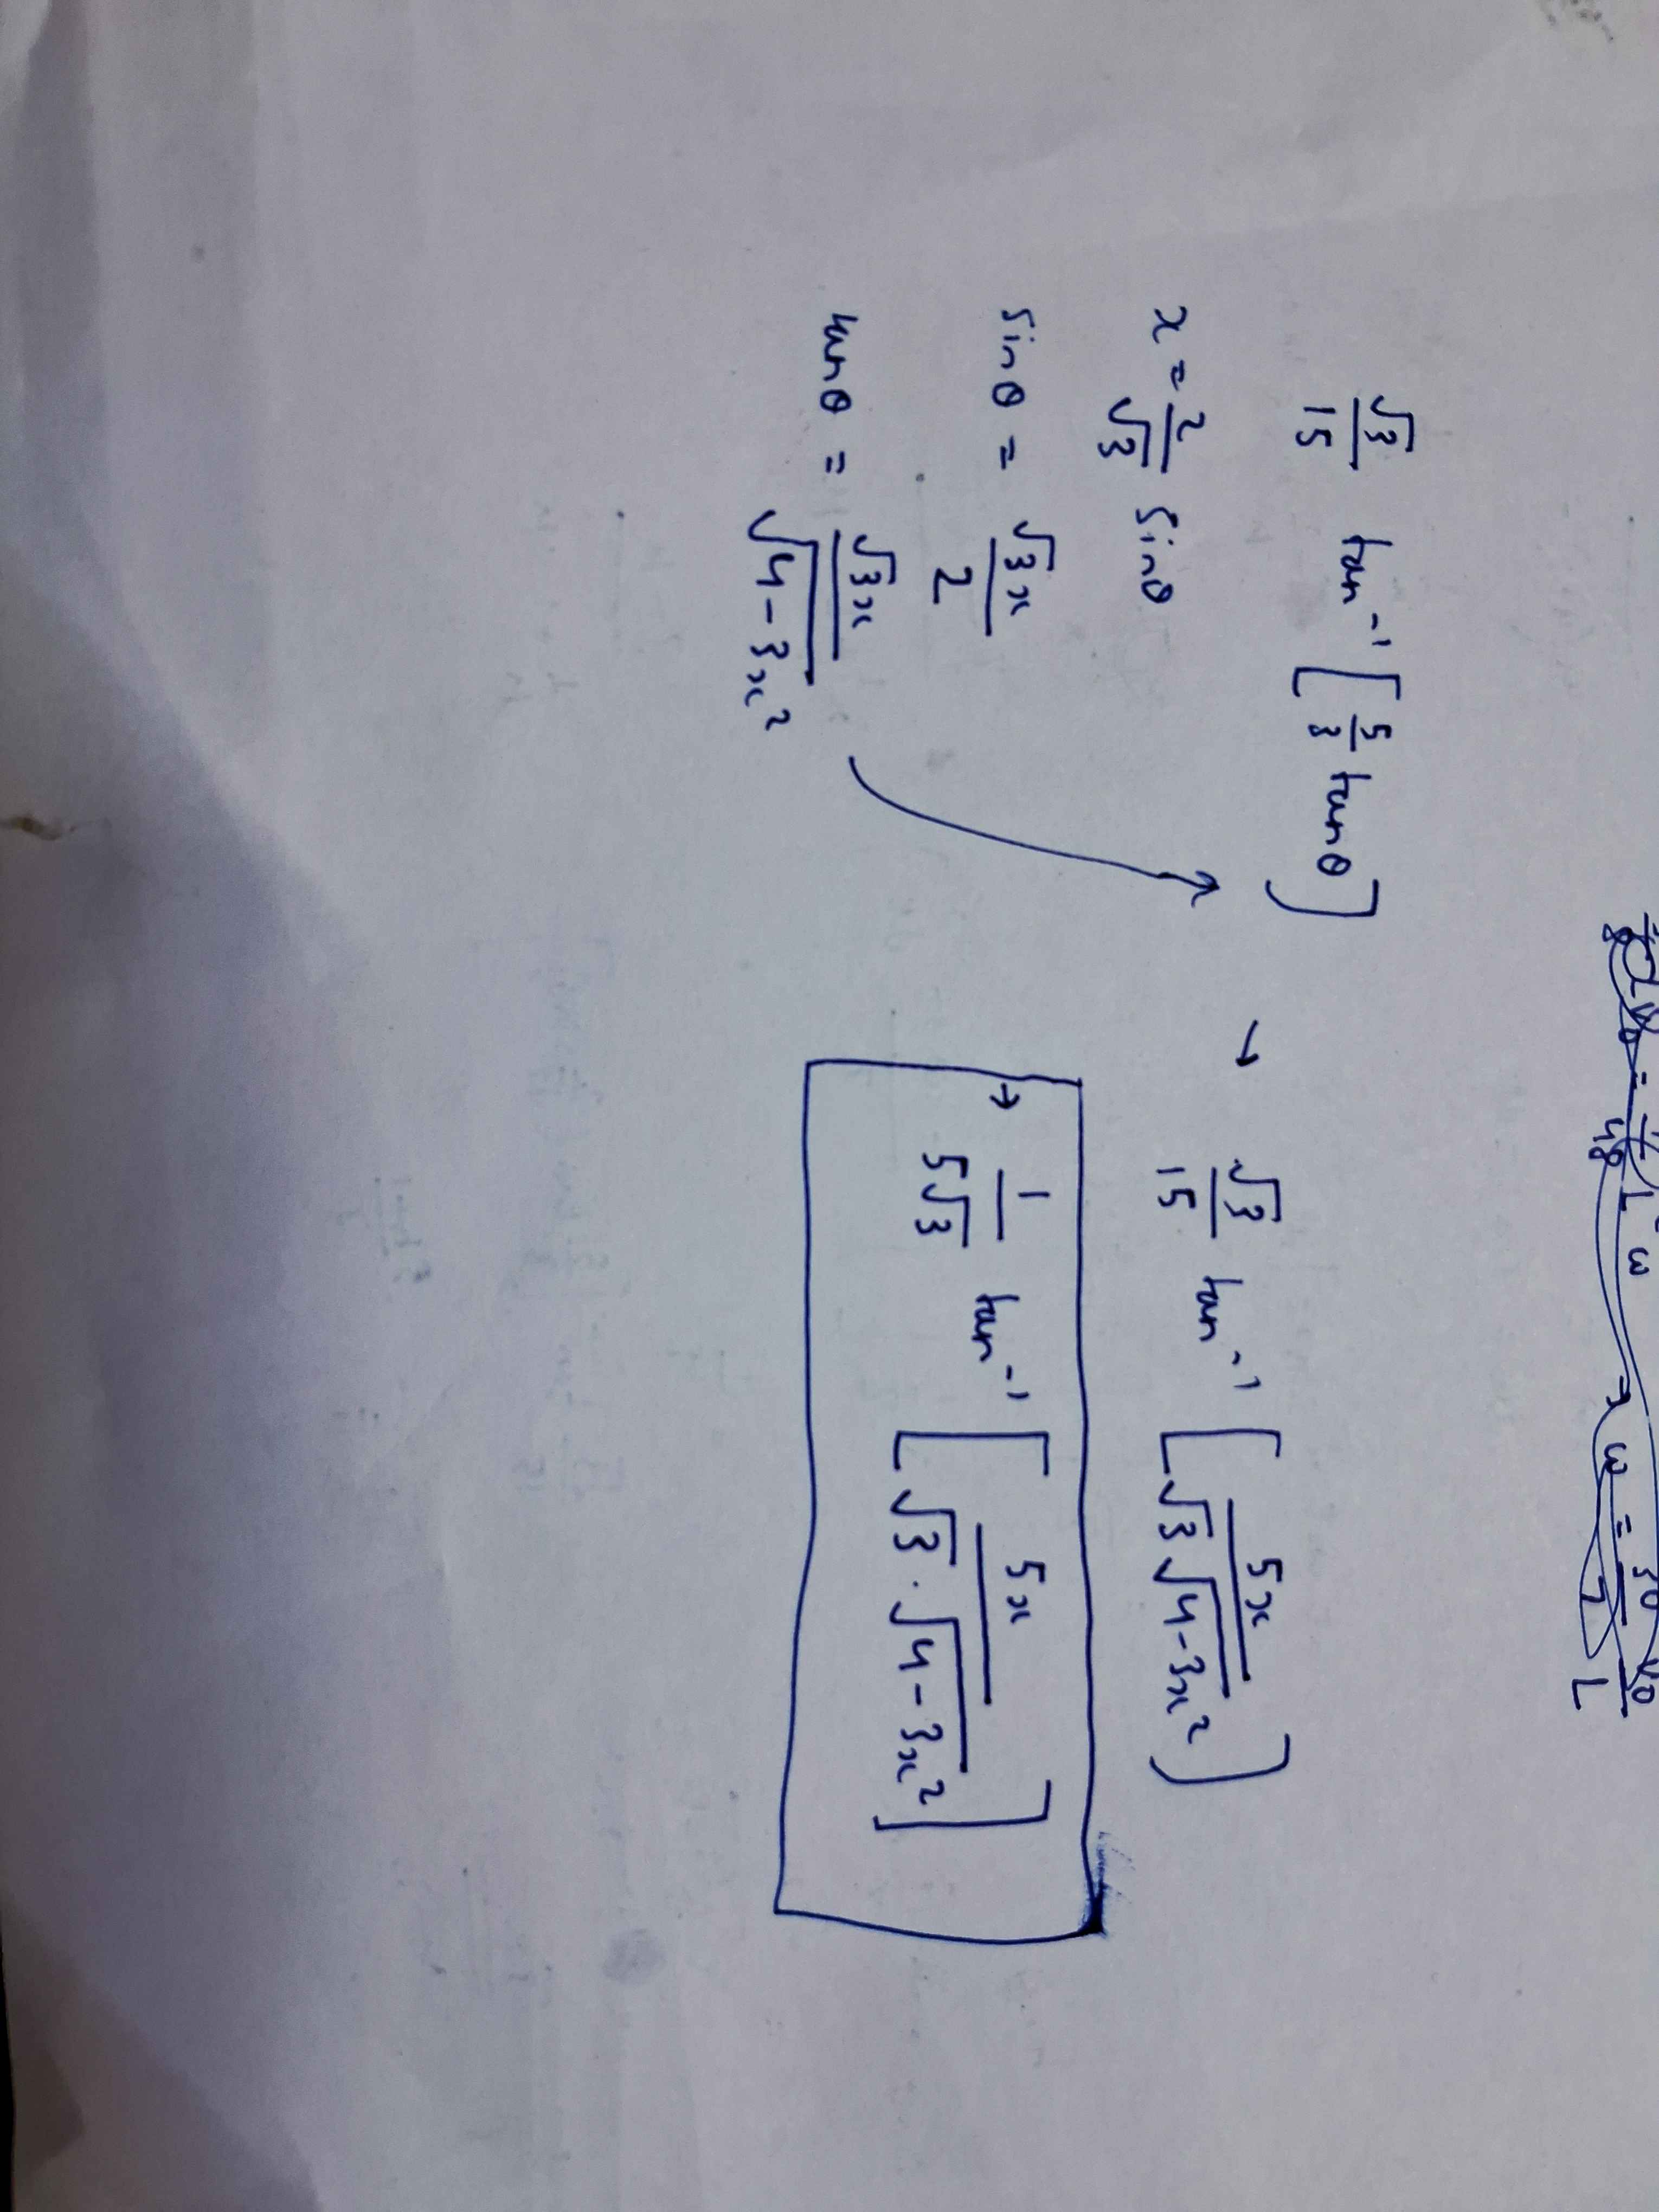 √3/15 tan⁻¹ [5/3 tanθ]
x = 2/√3 sinθ
sinθ = √3x/2
tanθ = √3x/√(4-3x²)
→ √3/15 tan⁻¹ [5x/(√3 √(4-3x²))]
→ 1/(5√3) tan⁻¹ [5x/(√3 · √(4-3x²))]